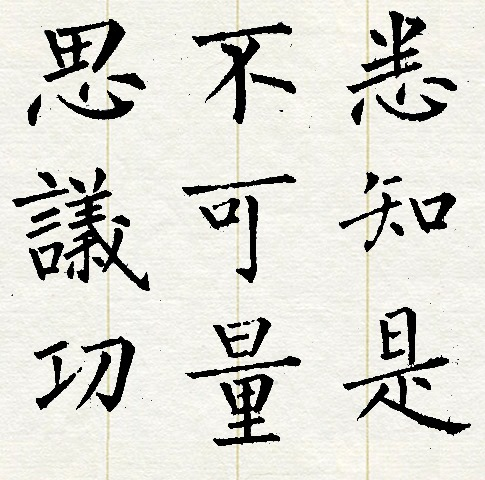 悉知是
不可量
思議功